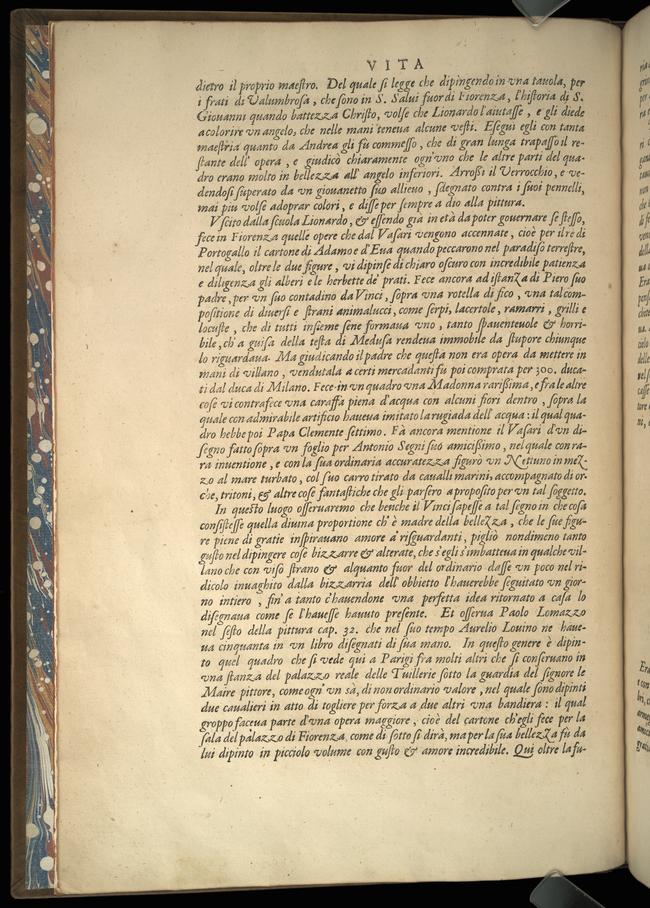 VITA
dietro il proprio maeſtro. Del quale ſi legge che dipingendo in vna tauola, per
i frati di Valumbroſa, che ſono in S. Salui fuor di Fiorenza, l'hiſtoria di S.
Giouanni quando battezza Chriſto, volſe che Lionardo l'aiutaſſe, e gli diede
a colorire vn angelo, che nelle mani teneua alcune veſti. Eſegui egli con tanta
maeſtria quanto da Andrea gli fù commeſſo, che di gran lunga trapaſſo il re-
ſtante dell' opera, e giudicò chiaramente ogn'vno che le altre parti del qua-
dro erano molto in bellezza all' angelo inferiori. Arroßi il Verrocchio, e ve-
dendoſi ſuperato da vn giouanetto ſuo allieuo, ſdegnato contra i ſuoi pennelli,
mai piu volſe adoprar colori, e diſſe per ſempre a dio alla pittura.
Vſcito dalla ſcuola Lionardo, & eſſendo già in età da poter gouernare ſe ſteſſo,
fece in Fiorenza quelle opere che dal Vaſari vengono accennate, cioè per il re di
Portogallo il cartone di Adamo e d'Eua quando peccarono nel paradiſo terreſtre,
nel quale, oltre le due figure, vi dipinſe di chiaro oſcuro con incredibile patienza
e diligenza gli alberi e le herbette de' prati. Fece ancora ad iſtanza di Piero ſuo
padre, per vn ſuo contadino da Vinci, ſopra vna rotella di fico, vna tal com-
poſitione di diuerſi e ſtrani animalucci, come ſerpi, lacertole, ramarri, grilli e
locuſte, che di tutti inſieme ſene formaua vno, tanto ſpauenteuole & horri-
bile, ch' a guiſa della teſta di Meduſa rendeua immobile da ſtupore chiunque
lo riguardaua. Ma giudicando il padre che queſta non era opera da mettere in
mani di villano, vendutala a certi mercadanti fu poi comprata per 300. duca-
ti dal duca di Milano. Fece in vn quadro vna Madonna rarißima, e fra le altre
coſe vi contrafece vna caraffa piena d'acqua con alcuni fiori dentro, ſopra la
quale con admirabile artificio haueua imitato la rugiada dell' acqua: il qual qua-
dro hebbe poi Papa Clemente ſettimo. Fà ancora mentione il Vaſari d'vn di-
ſegno fatto ſopra vn foglio per Antonio Segni ſuo amicißimo, nel quale con ra-
ra inuentione, e con la ſua ordinaria accuratezza figurò vn Nettuno in mez-
zo al mare turbato, col ſuo carro tirato da caualli marini, accompagnato di or-
che, tritoni, & altre coſe fantaſtiche che gli parſero a propoſito per vn tal ſoggetto.
In queſto luogo oſſeruaremo che benche il Vinci ſapeſſe a tal ſegno in che coſa
conſiſteſſe quella diuina proportione ch' è madre della bellezza, che le ſue figu-
re piene di gratie inſpirauano amore a' riſguardanti, pigliò nondimeno tanto
guſto nel dipingere coſe bizzarre & alterate, che s'egli s'imbatteua in qualche vil-
lano che con viſo ſtrano & alquanto fuor del ordinario daſſe vn poco nel ri-
dicolo inuaghito dalla bizzarria dell' obbietto l'hauerebbe ſeguitato vn gior-
no intiero, fin' a tanto c'hauendone vna perfetta idea ritornato a caſa lo
diſegnaua come ſe l'haueſſe hauuto preſente. Et oſſerua Paolo Lomazzo
nel ſeſto della pittura cap. 32. che nel ſuo tempo Aurelio Louino ne haue-
ua cinquanta in vn libro diſegnati di ſua mano. In queſto genere è dipin-
to quel quadro che ſi vede qui a Parigi fra molti altri che ſi conſeruano in
vna ſtanza del palazzo reale delle Tuillerie ſotto la guardia del ſignore le
Maire pittore, come ogn' vn sà, di non ordinario valore, nel quale ſono dipinti
due caualieri in atto di togliere per forza a due altri vna bandiera: il qual
groppo faceua parte d'vna opera maggiore, cioè del cartone ch'egli fece per la
ſala del palazzo di Fiorenza, come di ſotto ſi dirà, ma per la ſua bellezza fù da
lui dipinto in picciolo volume con guſto & amore incredibile. Qui oltre la fu-